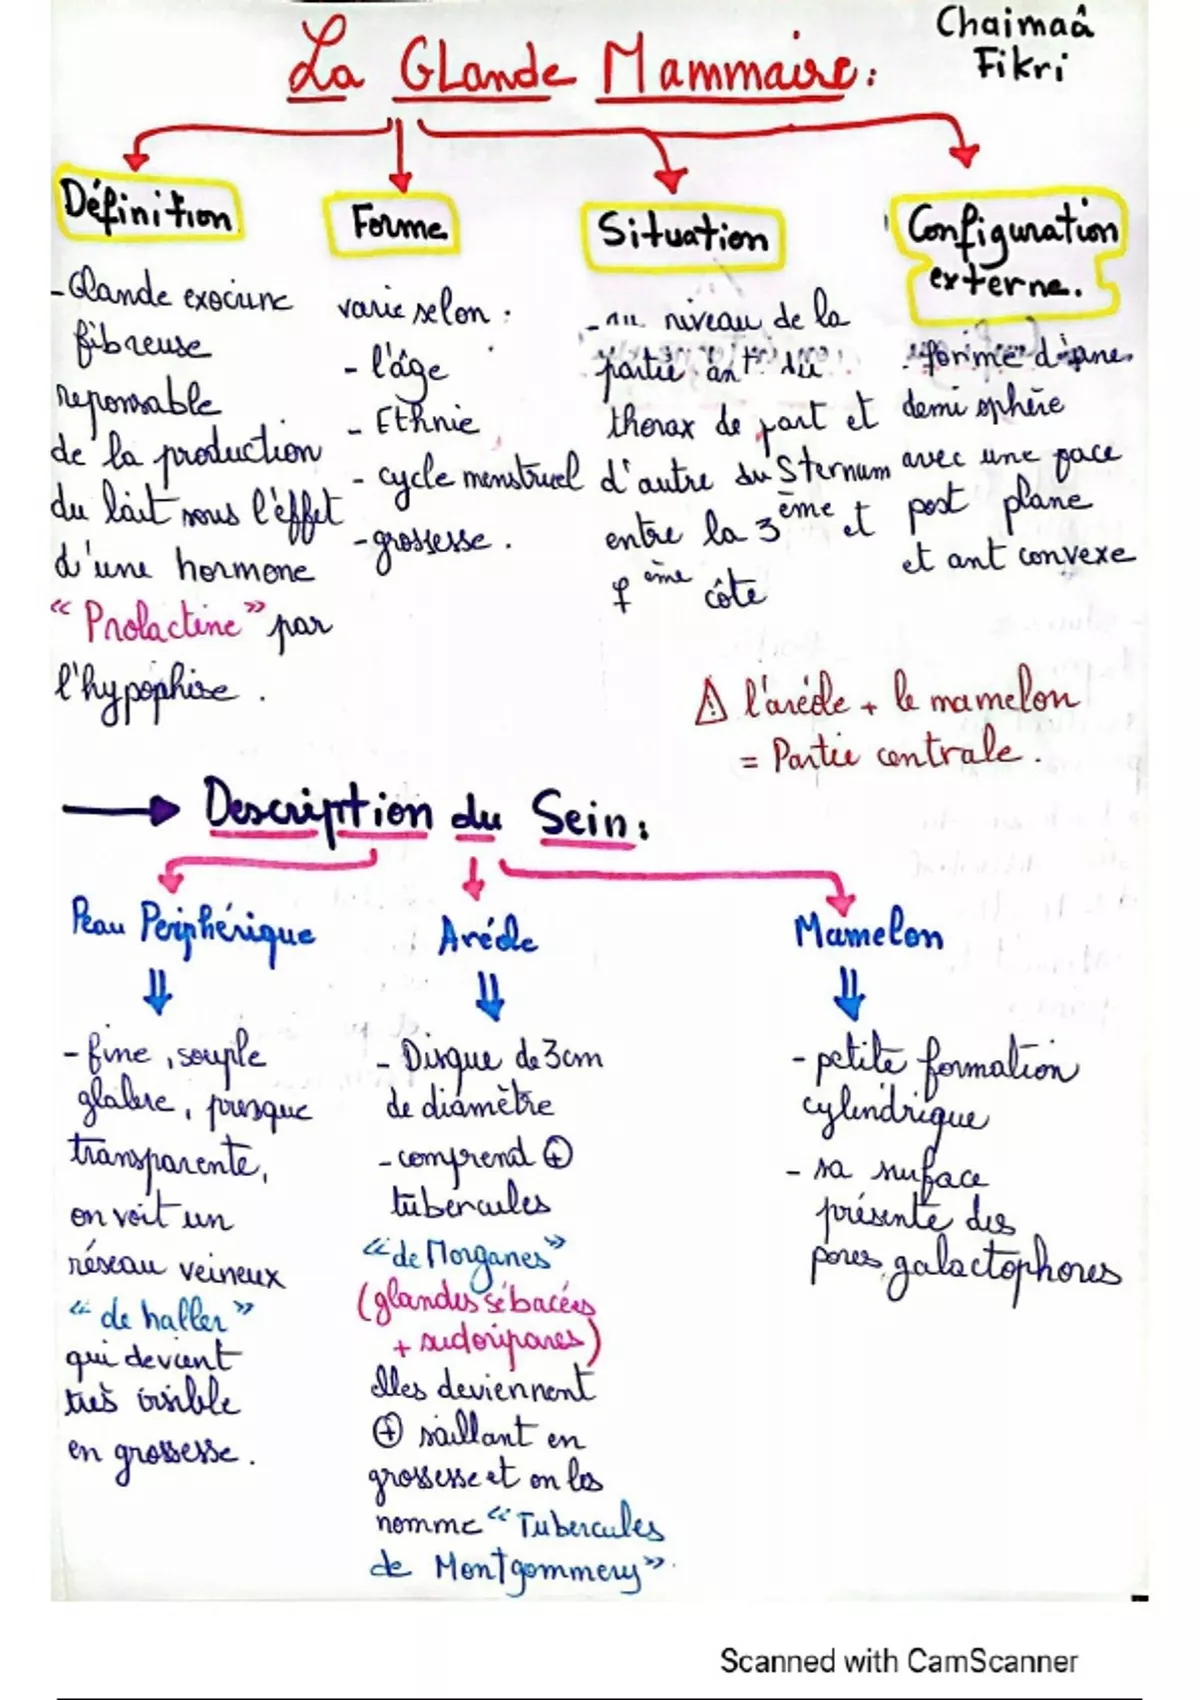 La Glande Mammaire:
Chaimaâ
Fikri
Définition
-Glande exocrine
fibreuse
reponsable
de la production
du lait sous l'éffet
d'une hormone
"Prolactine" par
l'hypophise.
Forme
varie selon :
- l'âge
- Ethnie
- cycle menstruel
-grossesse.
Situation
-au niveau de la
partie ant du
thorax de part et
d'autre du Sternum
entre la 3ème et
7ème côte
Configuration
externe.
- forme d'une
demi sphère
avec une face
post plane
et ant convexe
⚠ l'aréole + le mamelon
= Partie centrale.
Description du Sein:
Peau Periphérique
- fine, souple
glabre, presque
transparente,
on voit un
réseau veineux
"de haller"
qui devient
très visible
en grossesse.
Aréole
- Disque de 3cm
de diamètre
- comprend ⊕
tubercules
"de Morganes"
(glandes sébacées
+ sudoripares)
elles deviennent
⊕ saillant en
grossesse et on les
nomme "Tubercules
de Montgommery".
Mamelon
- petite formation
cylindrique
- sa surface
présente des
pores galactophores
Scanned with CamScanner